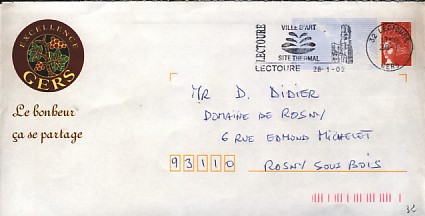 EXCELLENCE
GERS
Le bonheur
ça se partage
LECTOURE
VILLE D'ART
SITE THERMAL
LECTOURE 28-1-02
32 LECTOURE
GERS
Mr D. DIDIER
DOMAINE DE ROSNY
6 RUE EDMOND MICHELET
93110 ROSNY SOUS BOIS